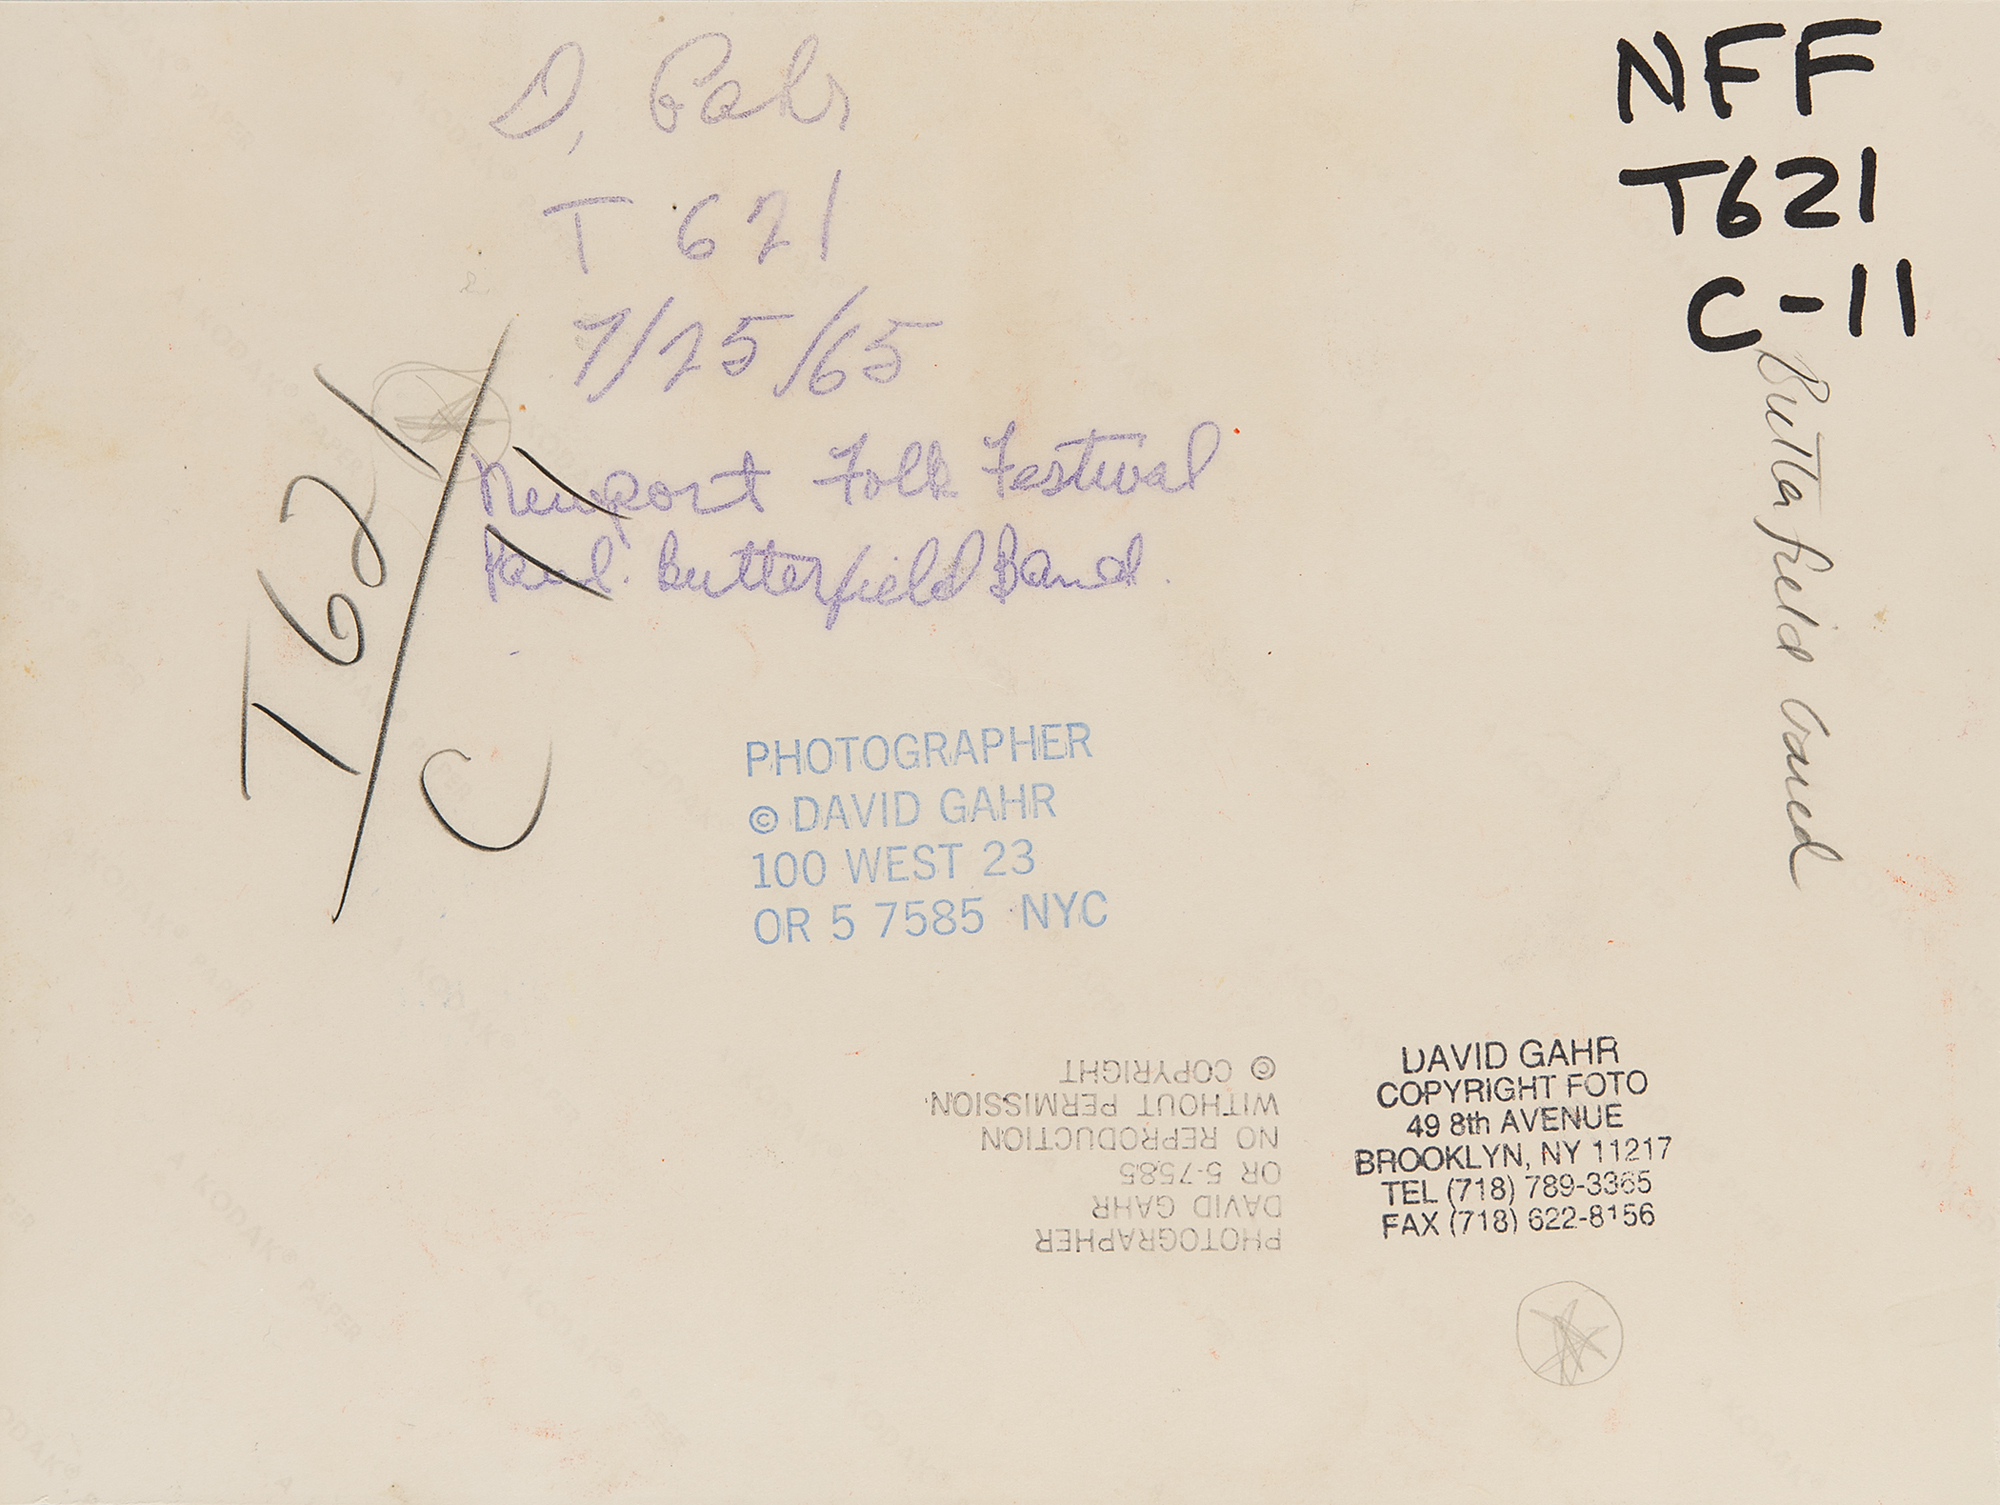 D. Gahr
T 621
7/25/65
Newport Folk Festival
Paul Butterfield Band.
NFF
T621
C-11
Butterfield Band
T621
C 11
PHOTOGRAPHER
© DAVID GAHR
100 WEST 23
OR 5 7585 NYC
PHOTOGRAPHER
DAVID GAHR
OR 5-7585
NO REPRODUCTION
WITHOUT PERMISSION
© COPYRIGHT
DAVID GAHR
COPYRIGHT FOTO
49 8th AVENUE
BROOKLYN, NY 11217
TEL (718) 789-3365
FAX (718) 622-8156
A KODAK® PAPER